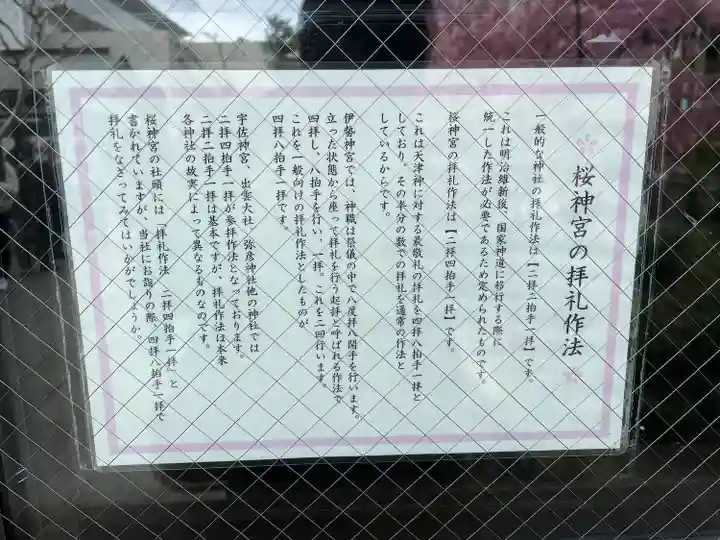 桜神宮の拝礼作法
一般的な神社の拝礼作法は【二拝二拍手一拝】です。
これは明治維新後、国家神道に移行する際に
統一した作法が必要であるため定められたものです。
桜神宮の拝礼作法は【二拝四拍手一拝】です。
これは天津神に対する最敬礼の拝礼を四拝八拍手一拝と
しており、その半分の数での拝礼を通常の作法と
しているからです。
伊勢神宮では、神職は祭儀の中で八度拝八開手を行います。
立った状態から座って拝礼を行う起拝と呼ばれる作法で
四拝し、八拍手を行い、一拝、これを二回行います。
これを一般向けの拝礼作法としたものが
四拝八拍手一拝です。
宇佐神宮、出雲大社、弥彦神社他の神社では
二拝四拍手一拝が参拝作法となっております。
二拝二拍手一拝は基本ですが、拝礼作法は本来
各神社の故実によって異なるものなのです。
桜神宮の社頭には「拝礼作法 二拝四拍手一拝」と
書かれていますが、当社にお詣りの際、四拝八拍手一拝で
拝礼をなさってみてはいかがでしょうか。